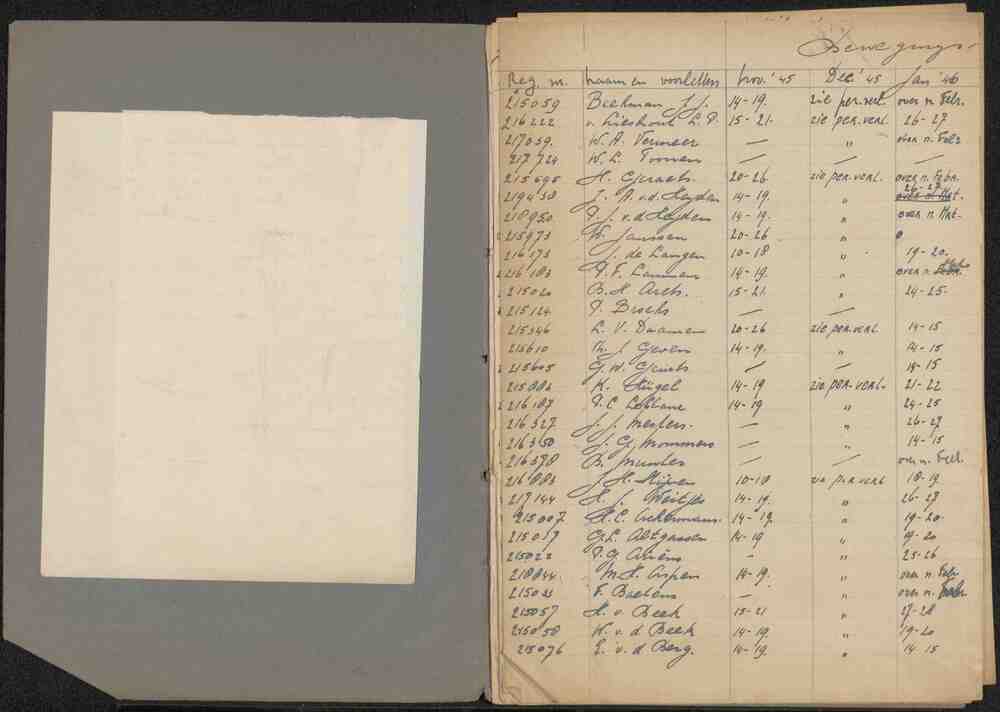 Bewegings-
Reg. nr. naam en voorletters Nov. '45 Dec. '45 Jan '46
215059 Beekman J.J. 14-19. zie per.verl. over n. Febr.
216222 v. Lieshout L.P. 15-21. zie per.verl. 26-27
217059. W.A. Vermeer — " over n. Febr
217724 W.L. Toonen — — —
215695 H. Geraets 20-26 zie per.verl. over n. Febr.
219450 J.A. v.d. Heyden 14-19. " 26-27 over n. Mrt.
218950. P.J. v.d. Heyden 14-19. " over n. Mrt-
215973 Th. Janssen 20-26 "
216173 J. de Langen 10-18 " 19-20.
216183 P.F. Lammen 14-19. " over n.
215020 B.H. Arets. 15-21. " 24-25-
215124 P. Broeks — —
215346 L.V. Daamen 20-26 zie per.verl. 14-15
215610 Th. J. Geven 14-19. " 14-15
215605 G.W. Geurts — — 14-15
215886 K. Hügel 14-19 zie per.verl. 21-22
216187 P.C. Leblanc 14-19 " 24-25
216327 J.J. Mertens. — " 26-27
216350 J.G. Mommers — " 14-15
216378 B. — — over n. Febr.
216883 J.H. 10-18 zie per.verl 18-19
217144 H.J. Weitjes 14-19. " 26-27
215007 H.C. Ackermans. 14-19. " 19-20-
215017 G.L. Altgassen 14-19 " 19-20
215022 P.G. Ariëns — " 25-26
218044 M.H. 14-19. " over n. Febr
215033 F. Baetens — " over n.
215057 H. v. Beek 15-21 " 27-28
215058 K. v.d. Beek 14-19. " 19-20
215076 E. v.d. Berg. 14-19. " 14-15